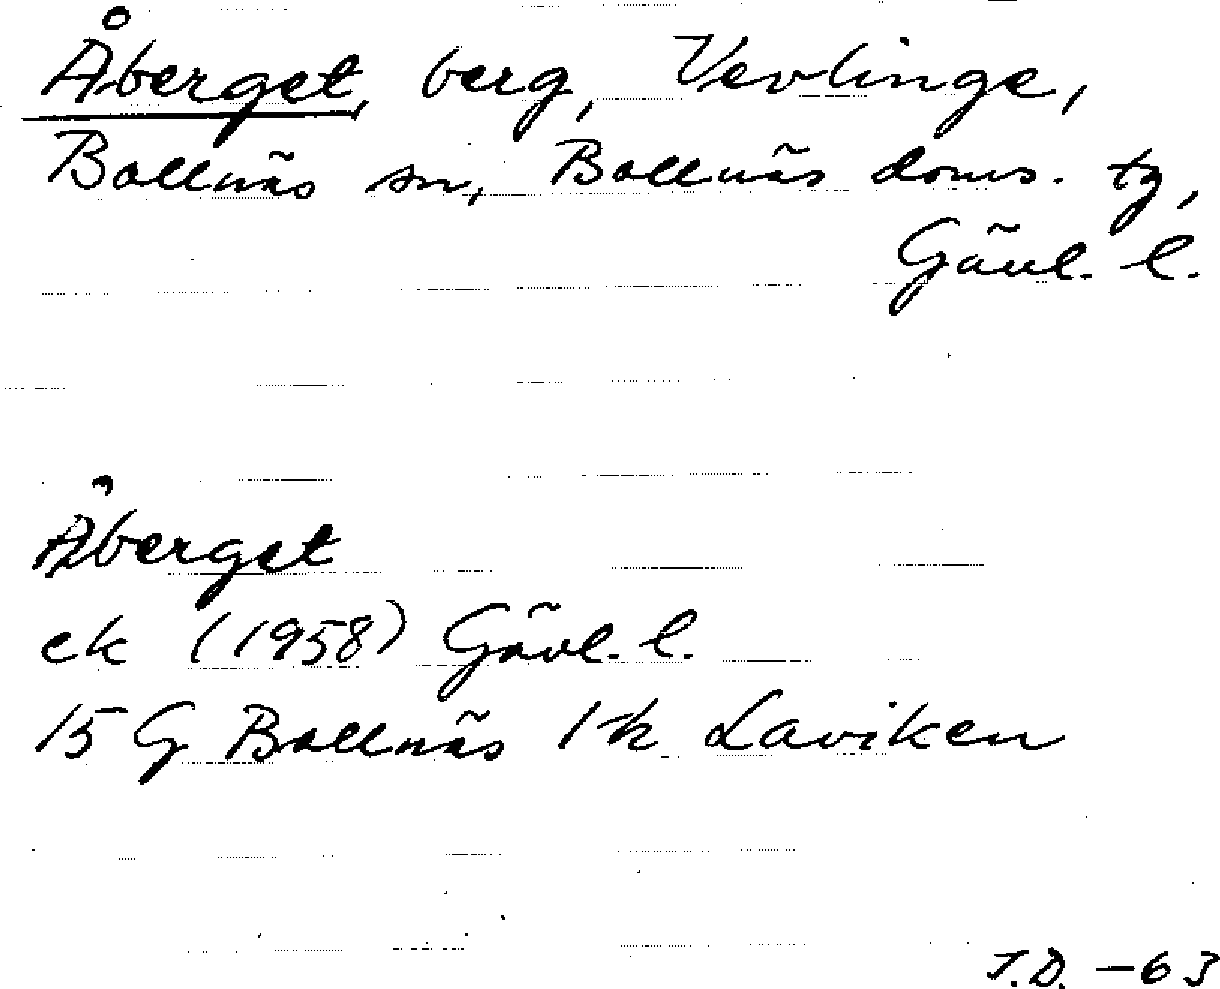 Åberget, berg, Vevlinge,
Bollnäs sn, Bollnäs doms. tg,
Gävl. l.
Åberget
ek (1958) Gävl. l.
15 G Bollnäs 1-k Laviken
T.D. -63